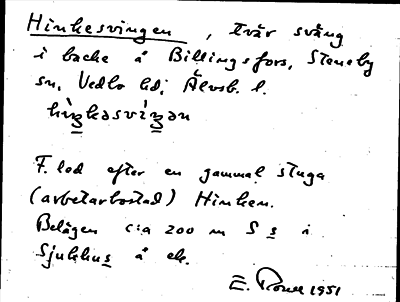 Hinkesvingen, tvär sväng
i backe å Billingsfors, Steneby
sn, Vedbo hd, Älvsb. l.
hìŋkəsvíŋən
F. lod efter en gammal stuga
(arbetarbostad) Hinken.
Belägen c:a 200 m S s i
Sjukhus å ek.
E. 1951